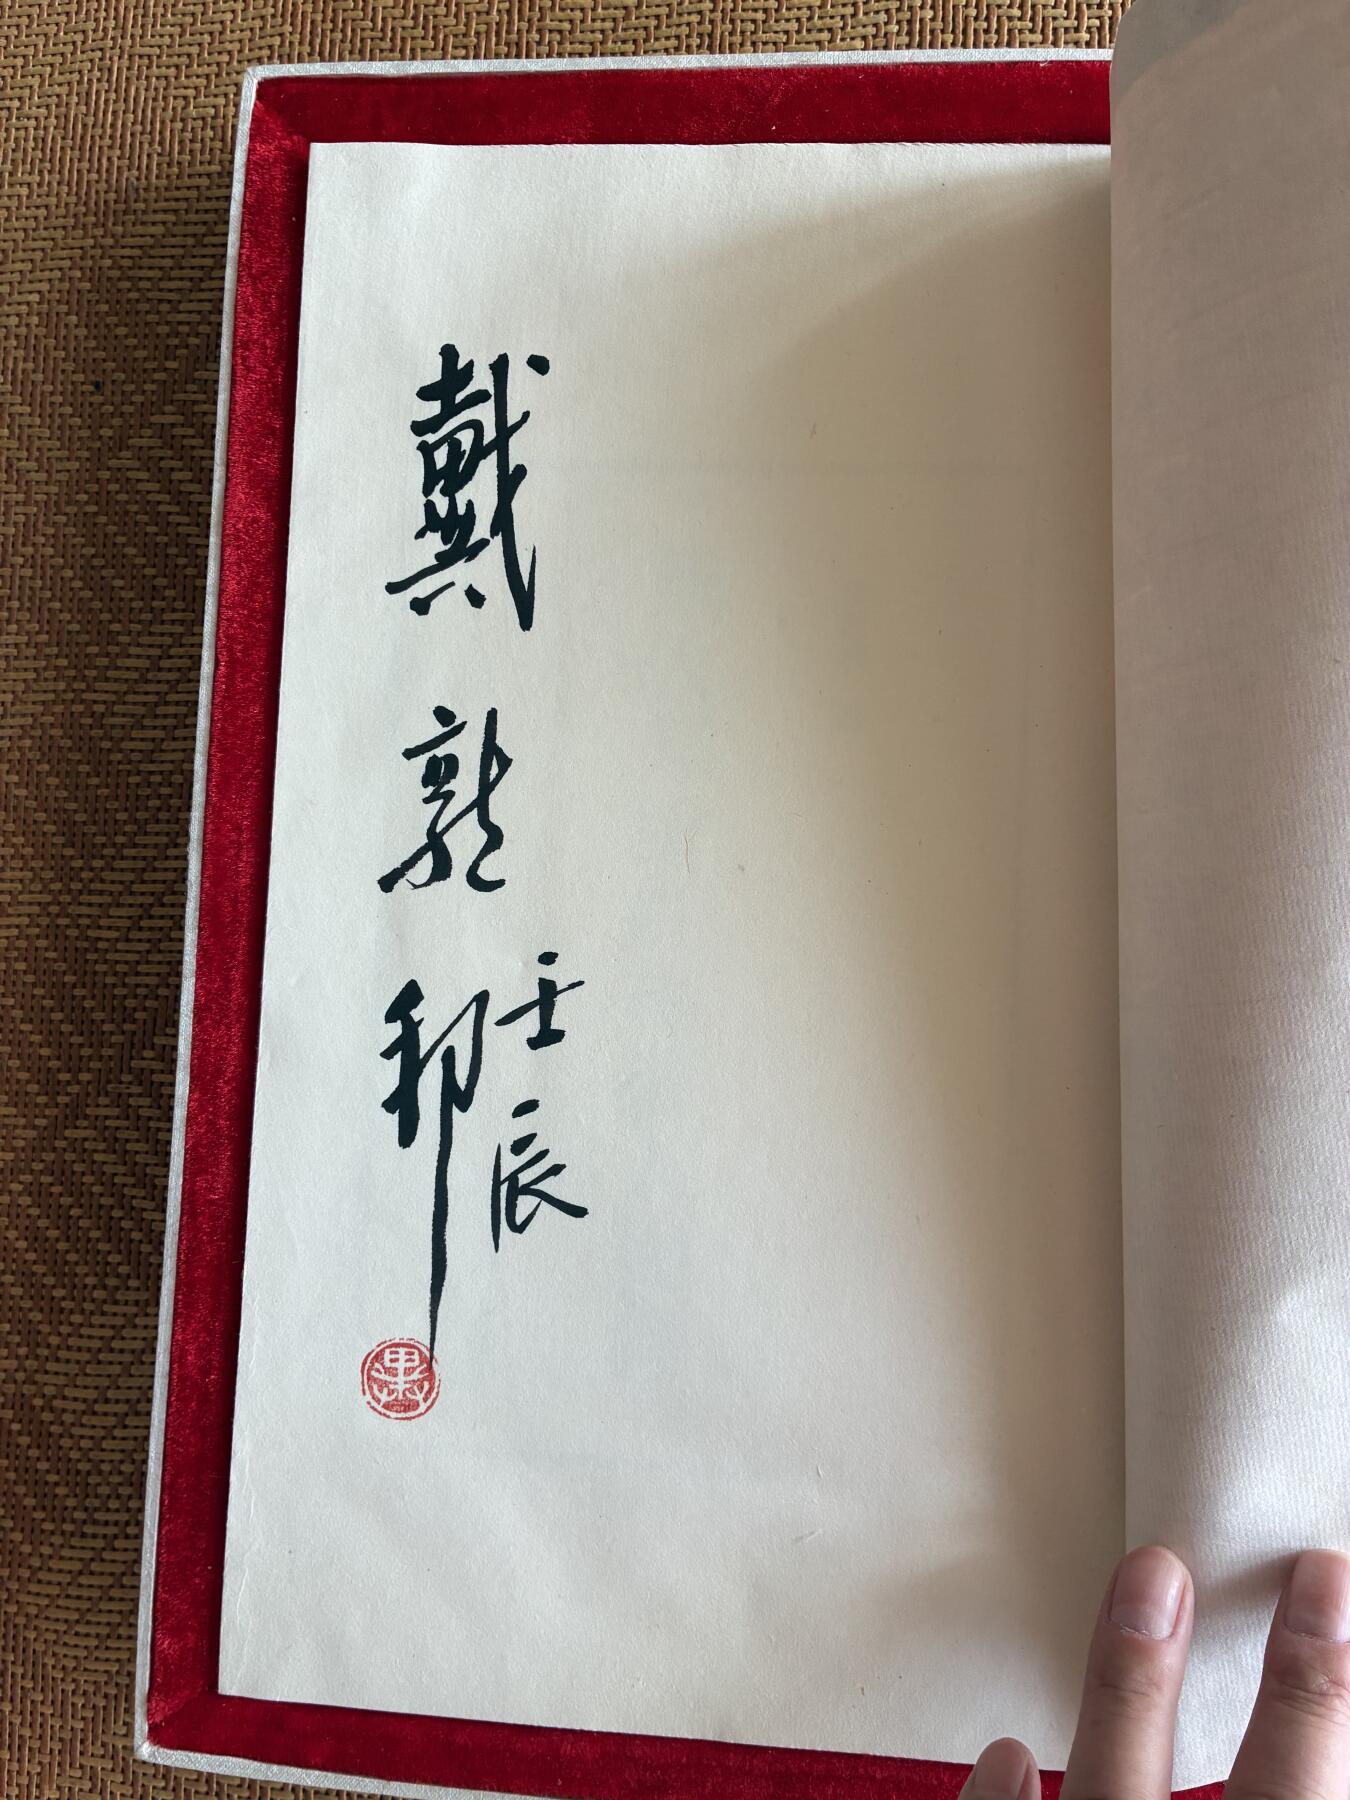 壬辰
戴敦邦